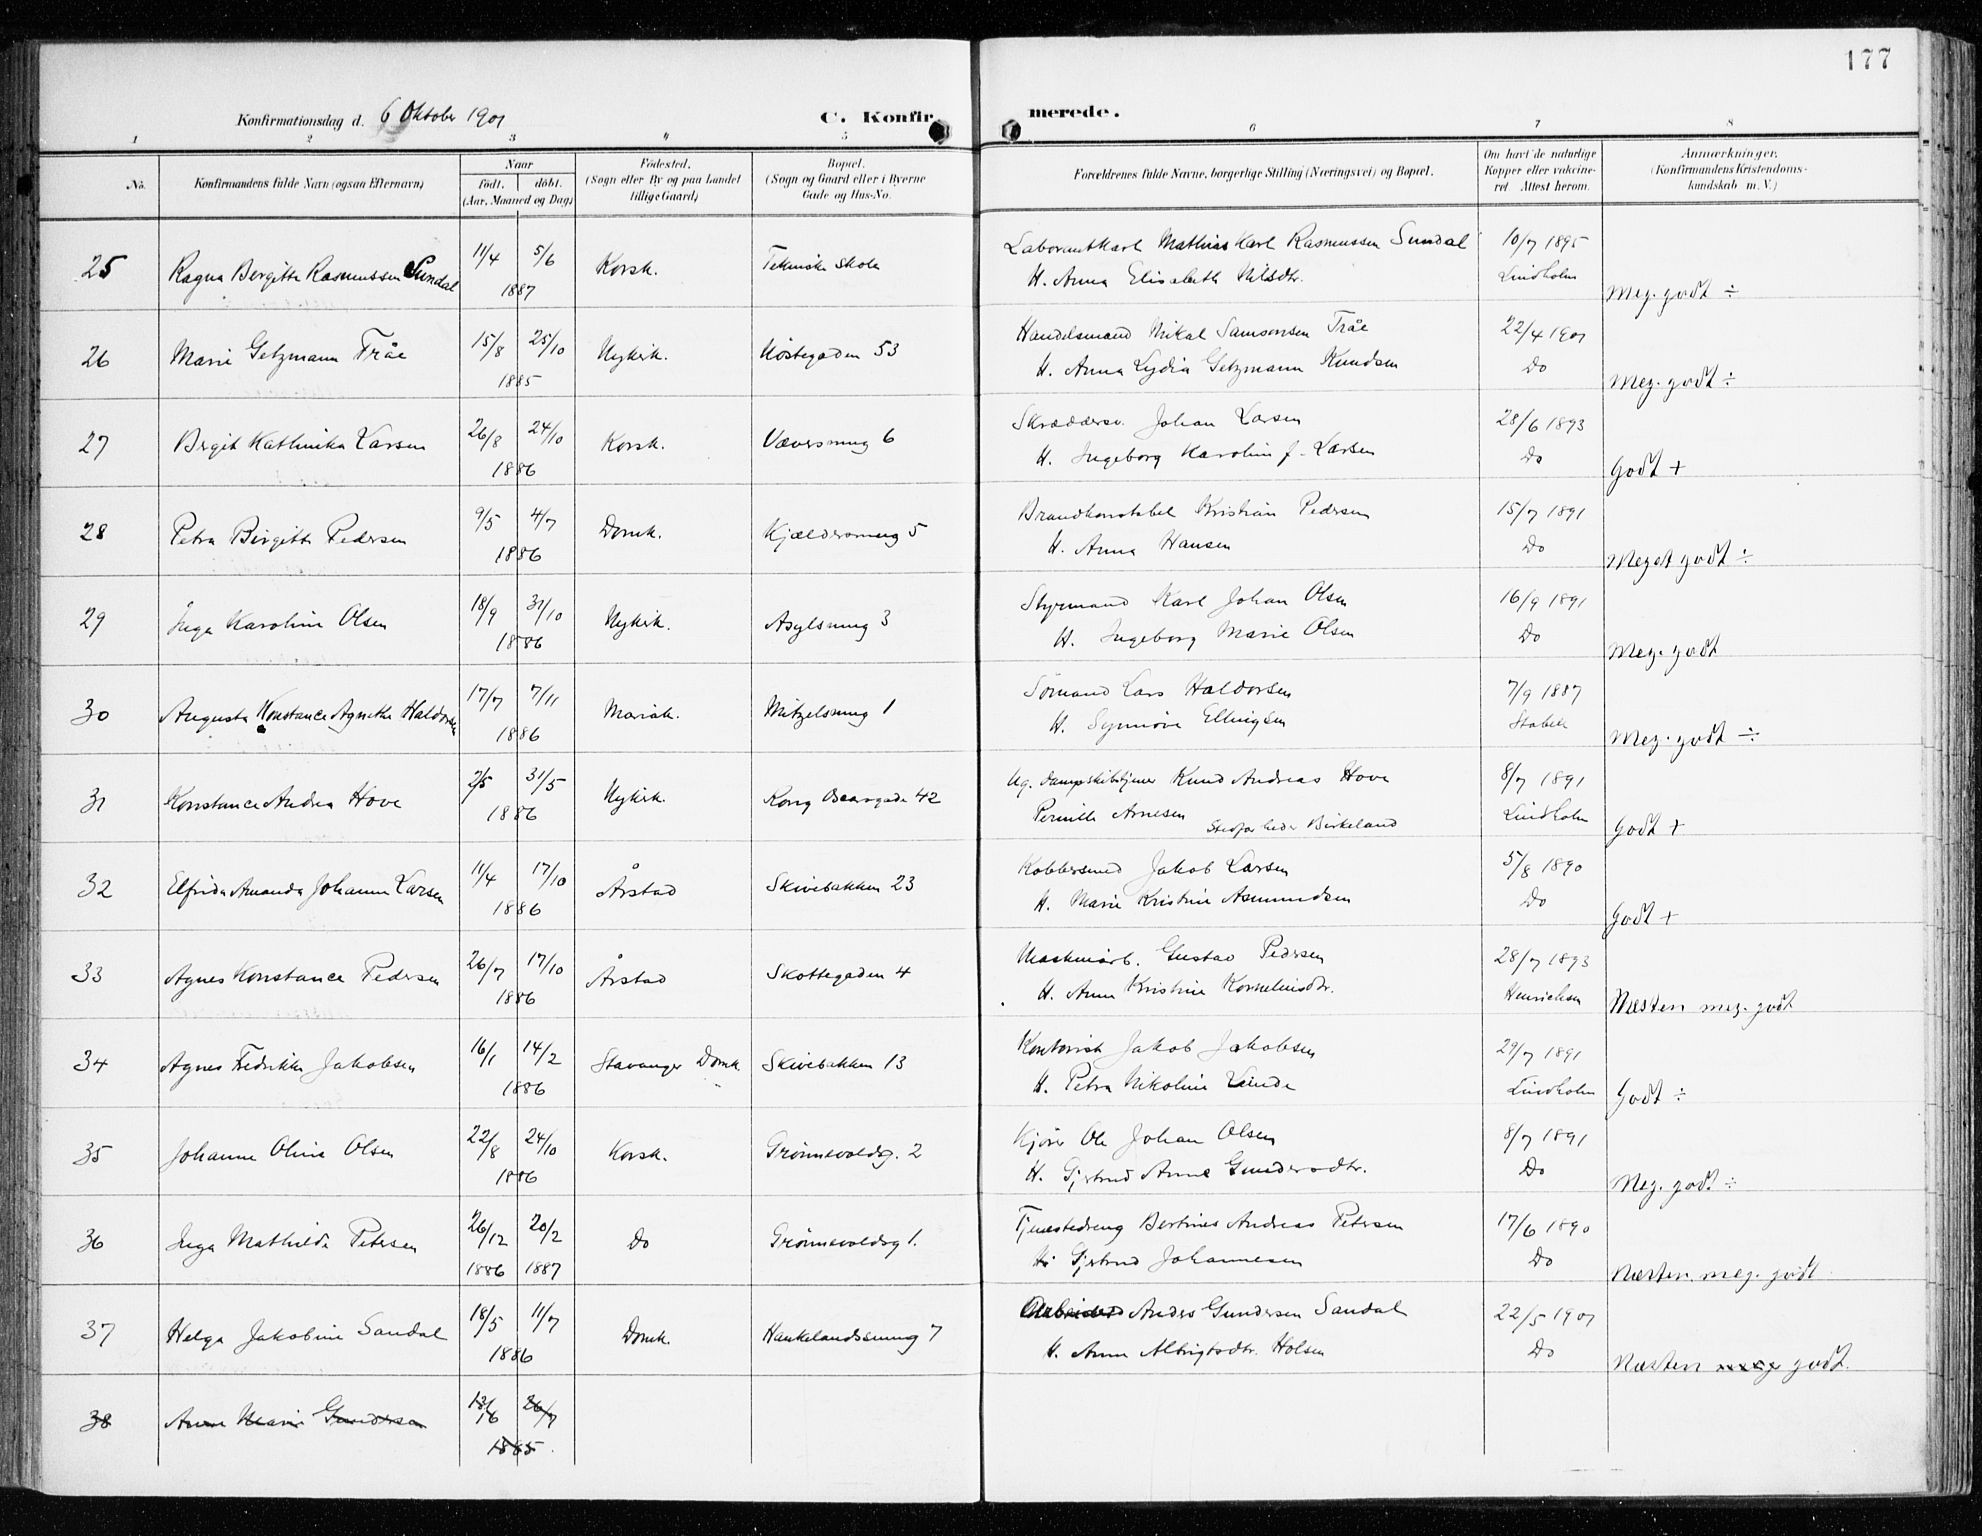 177
Konfirmationsdag d. 6 Oktober 1901
C. Konfirmerede.
1 2 3 4 5 6 7 8
No. Konfirmandens fulde Navn (ogsaa Efternavn) Naar født. døbt. (Aar, Maaned og Dag) Födested. (Sogn eller By og paa Landet tillige Gaard) Bopæl. (Sogn og Gaard eller i Byerne Gade og Hus-No. Forældrenes fulde Navne, borgerlige Stilling (Næringsvei) og Bopæl. Om havt de naturlige Kopper eller vaccineret. Attest herom. Anmærkninger. (Konfirmandens Kristendomskundskab m. V.)
25 Ragna Bergitte Rasmussen Sundal 11/4 5/6 1887 Korsk. Tekniske Skole Laborantkarl Mathias Karl Rasmussen Sundal 10/7 1895
H. Anna Elisabeth Nilsdtr. Lindholm Meg. godt ÷
26 Marie Getzmann Tråe 15/8 25/10 1885 Nykirk. Nøstegaden 53 Handelsmand Mikal Samsonsen Tråe 22/4 1901
H. Anna Lydia Getzmann Knudsen Do Meg. godt ÷
27 Birgit Kathinka Larsen 26/8 24/10 1886 Korsk. Væversmug 6 Skræddersv. Johan Larsen 28/6 1893
H. Ingeborg Karolin f. Larsen Do Godt +
28 Petra Birgitte Pedersen 9/5 4/7 1886 Domk. Kjældersmug 5 Brandkonstabel Kristian Pedersen 15/7 1891
H. Anna Hansen Do Meget godt ÷
29 Inga Karoline Olsen 18/9 31/10 1886 Nykirk. Asylsmug 3 Styrmand Karl Johan Olsen 16/9 1891
H. Ingeborg Marie Olsen Do Meg. godt
30 Augusta Konstance Agnethe Haldorsen 17/7 7/11 1886 Mariak. Mitzelsmug 1 Sømand Lars Haldorsen 7/9 1887
H. Synnøve Ellingsen Stabell Meg. godt ÷
31 Konstance Andrea Hove 2/5 31/5 1886 Nykirk. Kong Oscarsgade 42 Ug. Dampskibstjener Knud Andreas Hove 8/7 1891
Pernille Arnesen Stedfar heder Birkeland Lindholm Godt +
32 Elfrida Amanda Johanne Larsen 11/4 17/10 1886 Årstad Skivebakken 23 Kobbersmed Jakob Larsen 5/8 1890
H. Marie Kristine Asmundsen Do Godt +
33 Agnes Konstance Pedersen 26/7 17/10 1886 Årstad Skottegaden 4 Maskinarb. Gustav Pedersen 28/7 1893
H. Anne Kristine Korneliusdtr. Henrichsen Næsten meg. godt
34 Agnes Fredrikke Jakobsen 16/1 14/2 1886 Stavanger Domk. Skivebakken 13 Kontorist Jakob Jakobsen 29/7 1891
H. Petra Nikoline Linde Lindholm Godt ÷
35 Johanne Oline Olsen 22/8 24/10 1886 Korsk. Grønnevoldsg. 2 Kjører Ole Johan Olsen 8/7 1891
H. Gjertrud Anne Gundersdtr. Do Meg. godt ÷
36 Inga Mathilde Petersen 26/12 1886 20/2 1887 Do Grønnevoldsg 1. Tjenestedreng Bertines Andreas Petersen 17/6 1890
H. Gjertrud Johannesen Do Næsten meg. godt
37 Helga Jakobine Sandal 18/5 11/7 1886 Domk. Haukelandssmug 7 Arbeider Anders Gundersen Sandal 22/5 1901
H. Anne Albrigtsdtr. Holsen Do Næsten meg godt.
38 Anne Marie Gundersen 26/7 1885.